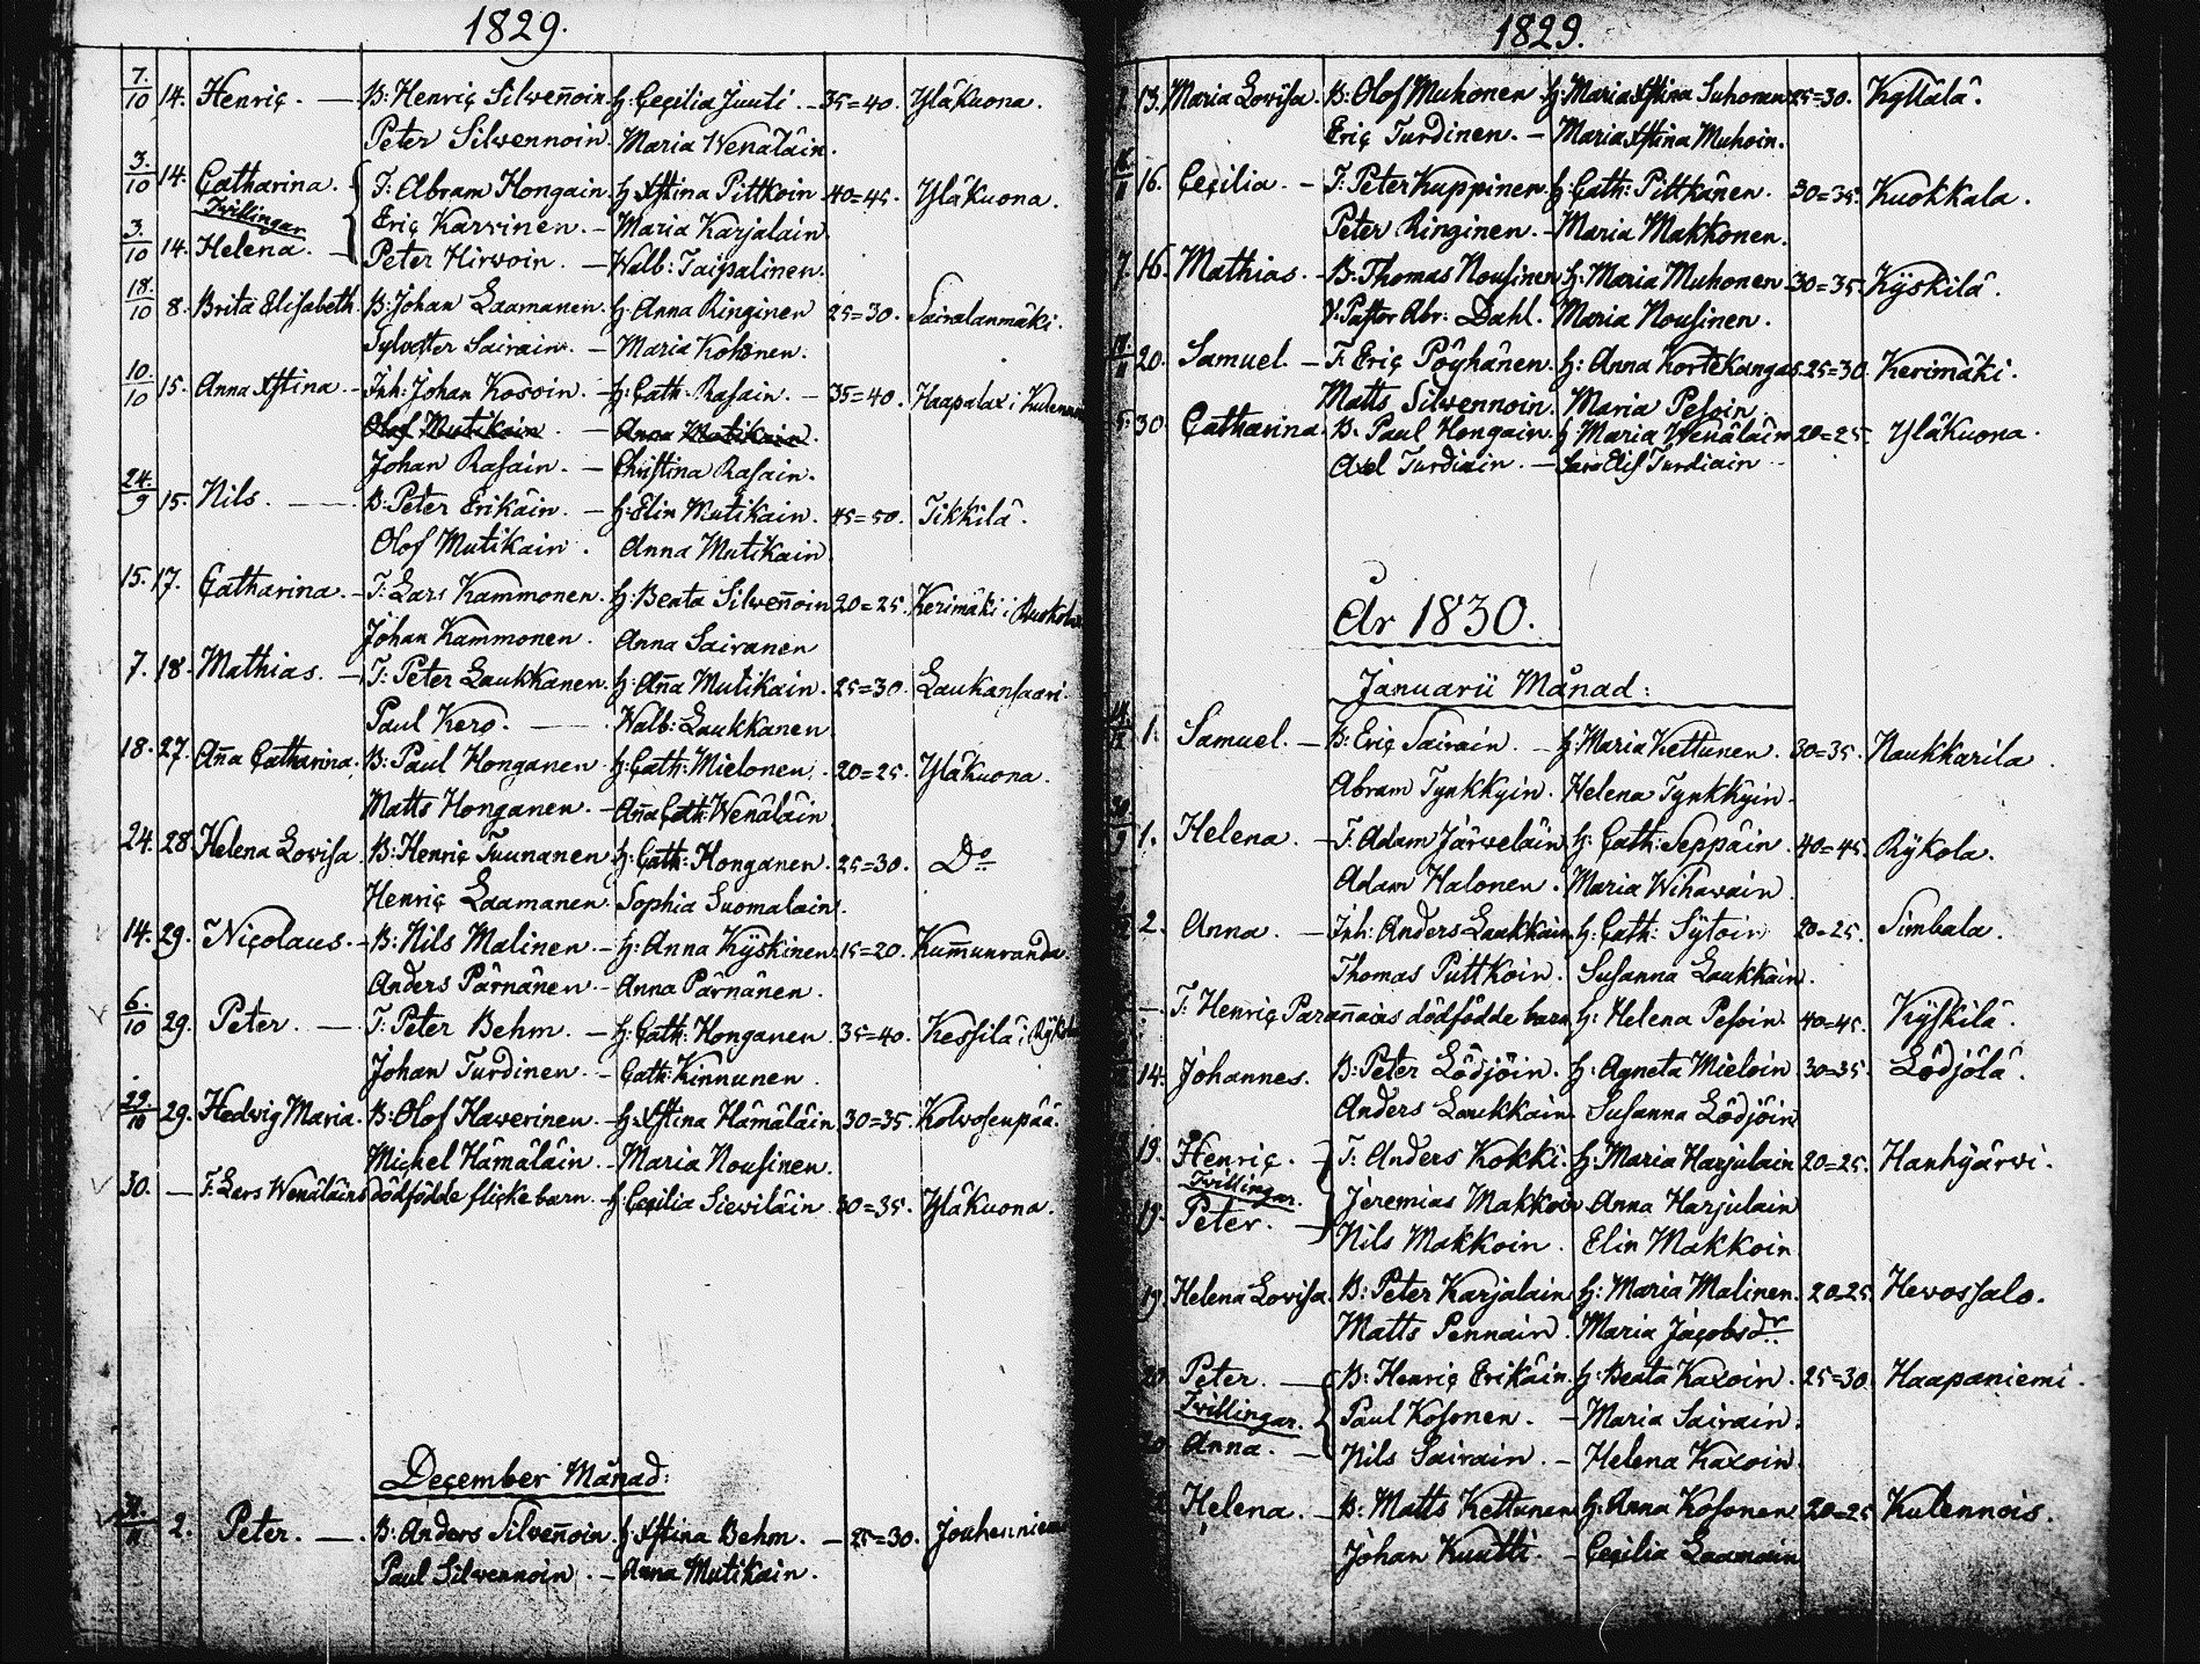 1829.
7./10 14. Henriç. — B: Henriç Silwen̄oin H: Çeçilia Juuti. - 35=40. Yläkuona.
Peter Silwennoin. Maria Wenäläin.
3./10 14. Çatharina. T: Abram Hongain. H: Xstina Pittkoin 40=45. Yläkuona.
Twillingar Eriç Karvinen. - Maria Karjalain.
3./10 14. Helena. - Peter Hirwoin. - Walb: Taipalinen.
18./10 8. Brita Elisabeth. B: Johan Laamanen. H: Anna Ringinen 25=30. Sairalanmäki.
Sylvester Sairain. - Maria Kohonen.
10./10 15. Anna Xstina. - Inh: Johan Kosoin. - H: Cath: Rasain. - 35=40. Haapalax i
Olof Mutikain. - Anna Mutikain.
Johan Rasain. - Christina Rasain.
24./9 15. Nils. — B: Peter Erikäin. - H: Elin Mutikain. 45=50. Tikkilä.
Olof Mutikain. Anna Mutikain.
15. 17. Çatharina. - T: Lars Kammonen. H: Beata Silwen̄oin 20=25. Kerimäki i
Johan Kammonen. Anna Sairanen
7. 18. Mathias. - T: Peter Laukkanen. H: An̄a Mutikain. 25=30. Laukansaari.
Paul Kero. — Walb: Laukkanen
18. 27. An̄a Çatharina. B: Paul Honganen H: Çath: Mielonen. 20=25. Yläkuona.
Matts Honganen. - An̄a Çath: Wenäläin
24. 28 Helena Lovisa. B: Henriç Tuunanen H: Çath: Honganen. 25=30. Do
Henriç Laamanen. Sophia Suomalain.
14. 29. Niçolaus. - B: Nils Malinen - H: Anna Kÿskinen. 15=20. Kum̄unranda
Anders Pärnänen - Anna Pärnänen.
6./10 29. Peter. — T: Peter Behm. - H: Çath: Honganen. 35=40. Kessilä i
Johan Turdinen. - Çath: Kinnunen.
29./10 29. Hedvig Maria. B: Olof Hawerinen. - H: Xstina Hämäläin. 30=35. Kolvosenpää.
Michel Hämäläin. - Maria Nousinen.
30. — T: Lars Wenäläins dödfödde fliçkebarn. - H: Çeçilia Siewiläin 30=35. Yläkuona.
Deçember Månad:
/11 2. Peter. — B: Anders Silwen̄oin. H: Xstina Behm. - 25=30. Jouhenniemi
Paul Silwennoin. - Anna Mutikain.
1829.
13. Maria Lovisa. B: Olof Muhonen H: Maria Xstina Suhonen 25=30. Kyllälä.
Eriç Turdinen. - Maria Xstina Muhoin.
16. Çeçilia. - T: Peter Kuppinen. H: Çath: Pittkänen. 30=35. Kuokkala.
Peter Ringinen. - Maria Makkonen.
7. 16. Mathias. - B: Thomas Nousinen H: Maria Muhonen 30=35. Kÿskilä.
V: Pastor Abr: Dahl. Maria Nousinen.
20. Samuel. - T: Eriç Pöyhänen. H: Anna Kortekangas. 25=30. Kerimäki.
Matts Silwennoin. Maria Pesoin.
5. 30. Çatharina. B: Paul Hongain. H: Maria Wenäläin 20=25. Yläkuona.
Axel Turdiain. - Sara Elis Turdiain
År 1830.
Januarii Månad:
1. Samuel. - B: Eriç Sairain. - H: Maria Kettunen. 30=35. Naukkarila.
Abram Tynkkyin. Helena Tynkkyin.
1. Helena. - T: Adam Järweläin. H: Çath: Seppäin. 40=45. Rÿkola.
Adam Halonen. Maria Wihawain
2. Anna. - Inh: Anders Laukkain H: Çath: Sÿtoin 20=25. Simbala.
Thomas Puttkoin. Susanna Laukkain.
— T: Henriç Paran̄ains dödfödde barn H: Helena Pesoin. 40=45. Kÿskilä.
14. Johannes. B: Peter Lödjöin. H: Agneta Mieloin 30=35. Lödjölä.
Anders Laukkain. Susanna Lödjöin
19. Henriç. - T: Anders Kokki. H: Maria Harjulain 20=25. Hanhijärwi.
Twillingar. Jeremias Makkoin Anna Harjulain
19. Peter. - Nils Makkoin. Elin Makkoin
19. Helena Lovisa. B: Peter Karjalain H: Maria Malinen. 20=25. Hevossalo.
Matts Pennain. Maria Jaçobsdr
20 Peter. — B: Henriç Erikäin. H: Beata Kaxoin. 25=30. Haapaniemi.
Twillingar. Paul Kosonen. - Maria Sairain.
20. Anna. - Nils Sairain. - Helena Kaxoin.
Helena. - B: Matts Kettunen H: Anna Kosonen. 20=25 Kulennois.
Johan Kuutti. - Çeçilia Laamain